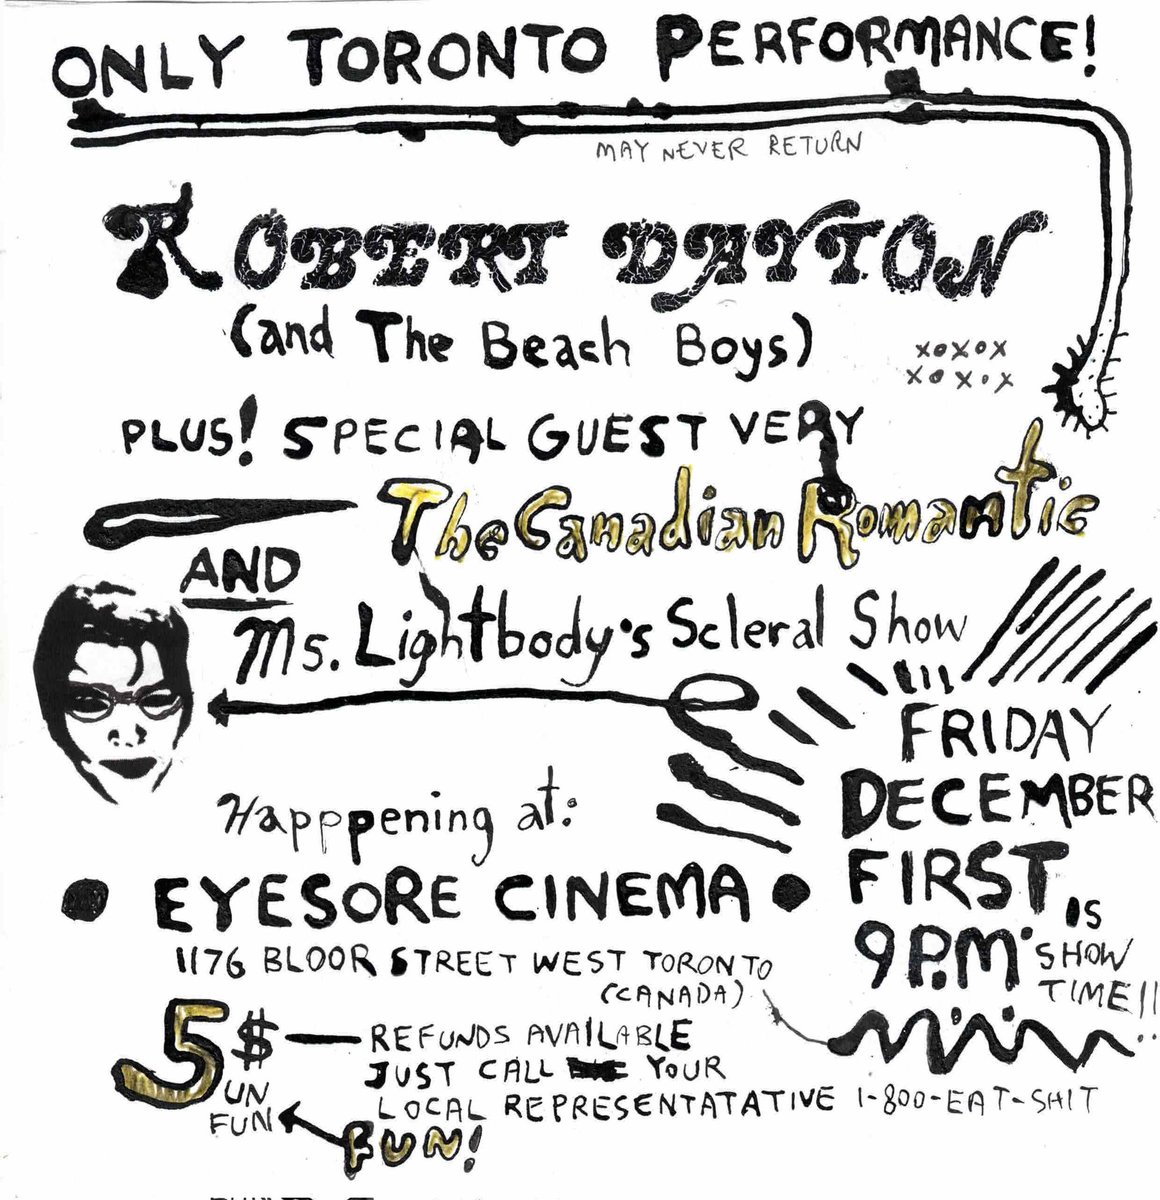 ONLY TORONTO PERFORMANCE!
MAY NEVER RETURN
ROBERT DAYTON
(and The Beach Boys)
xoxox
xoxox
PLUS! SPECIAL GUEST VERY
The Canadian Romantic
AND
Ms. Lightbody's Scleral Show
FRIDAY
DECEMBER
FIRST
9 P.M. IS
SHOW
TIME!!
Happpening at:
• EYESORE CINEMA •
1176 BLOOR STREET WEST TORONTO
(CANADA)
5$ — REFUNDS AVAILABLE
JUST CALL YOUR
LOCAL REPRESENTATATIVE 1-800-EAT-SHIT
UN
FUN
FUN!